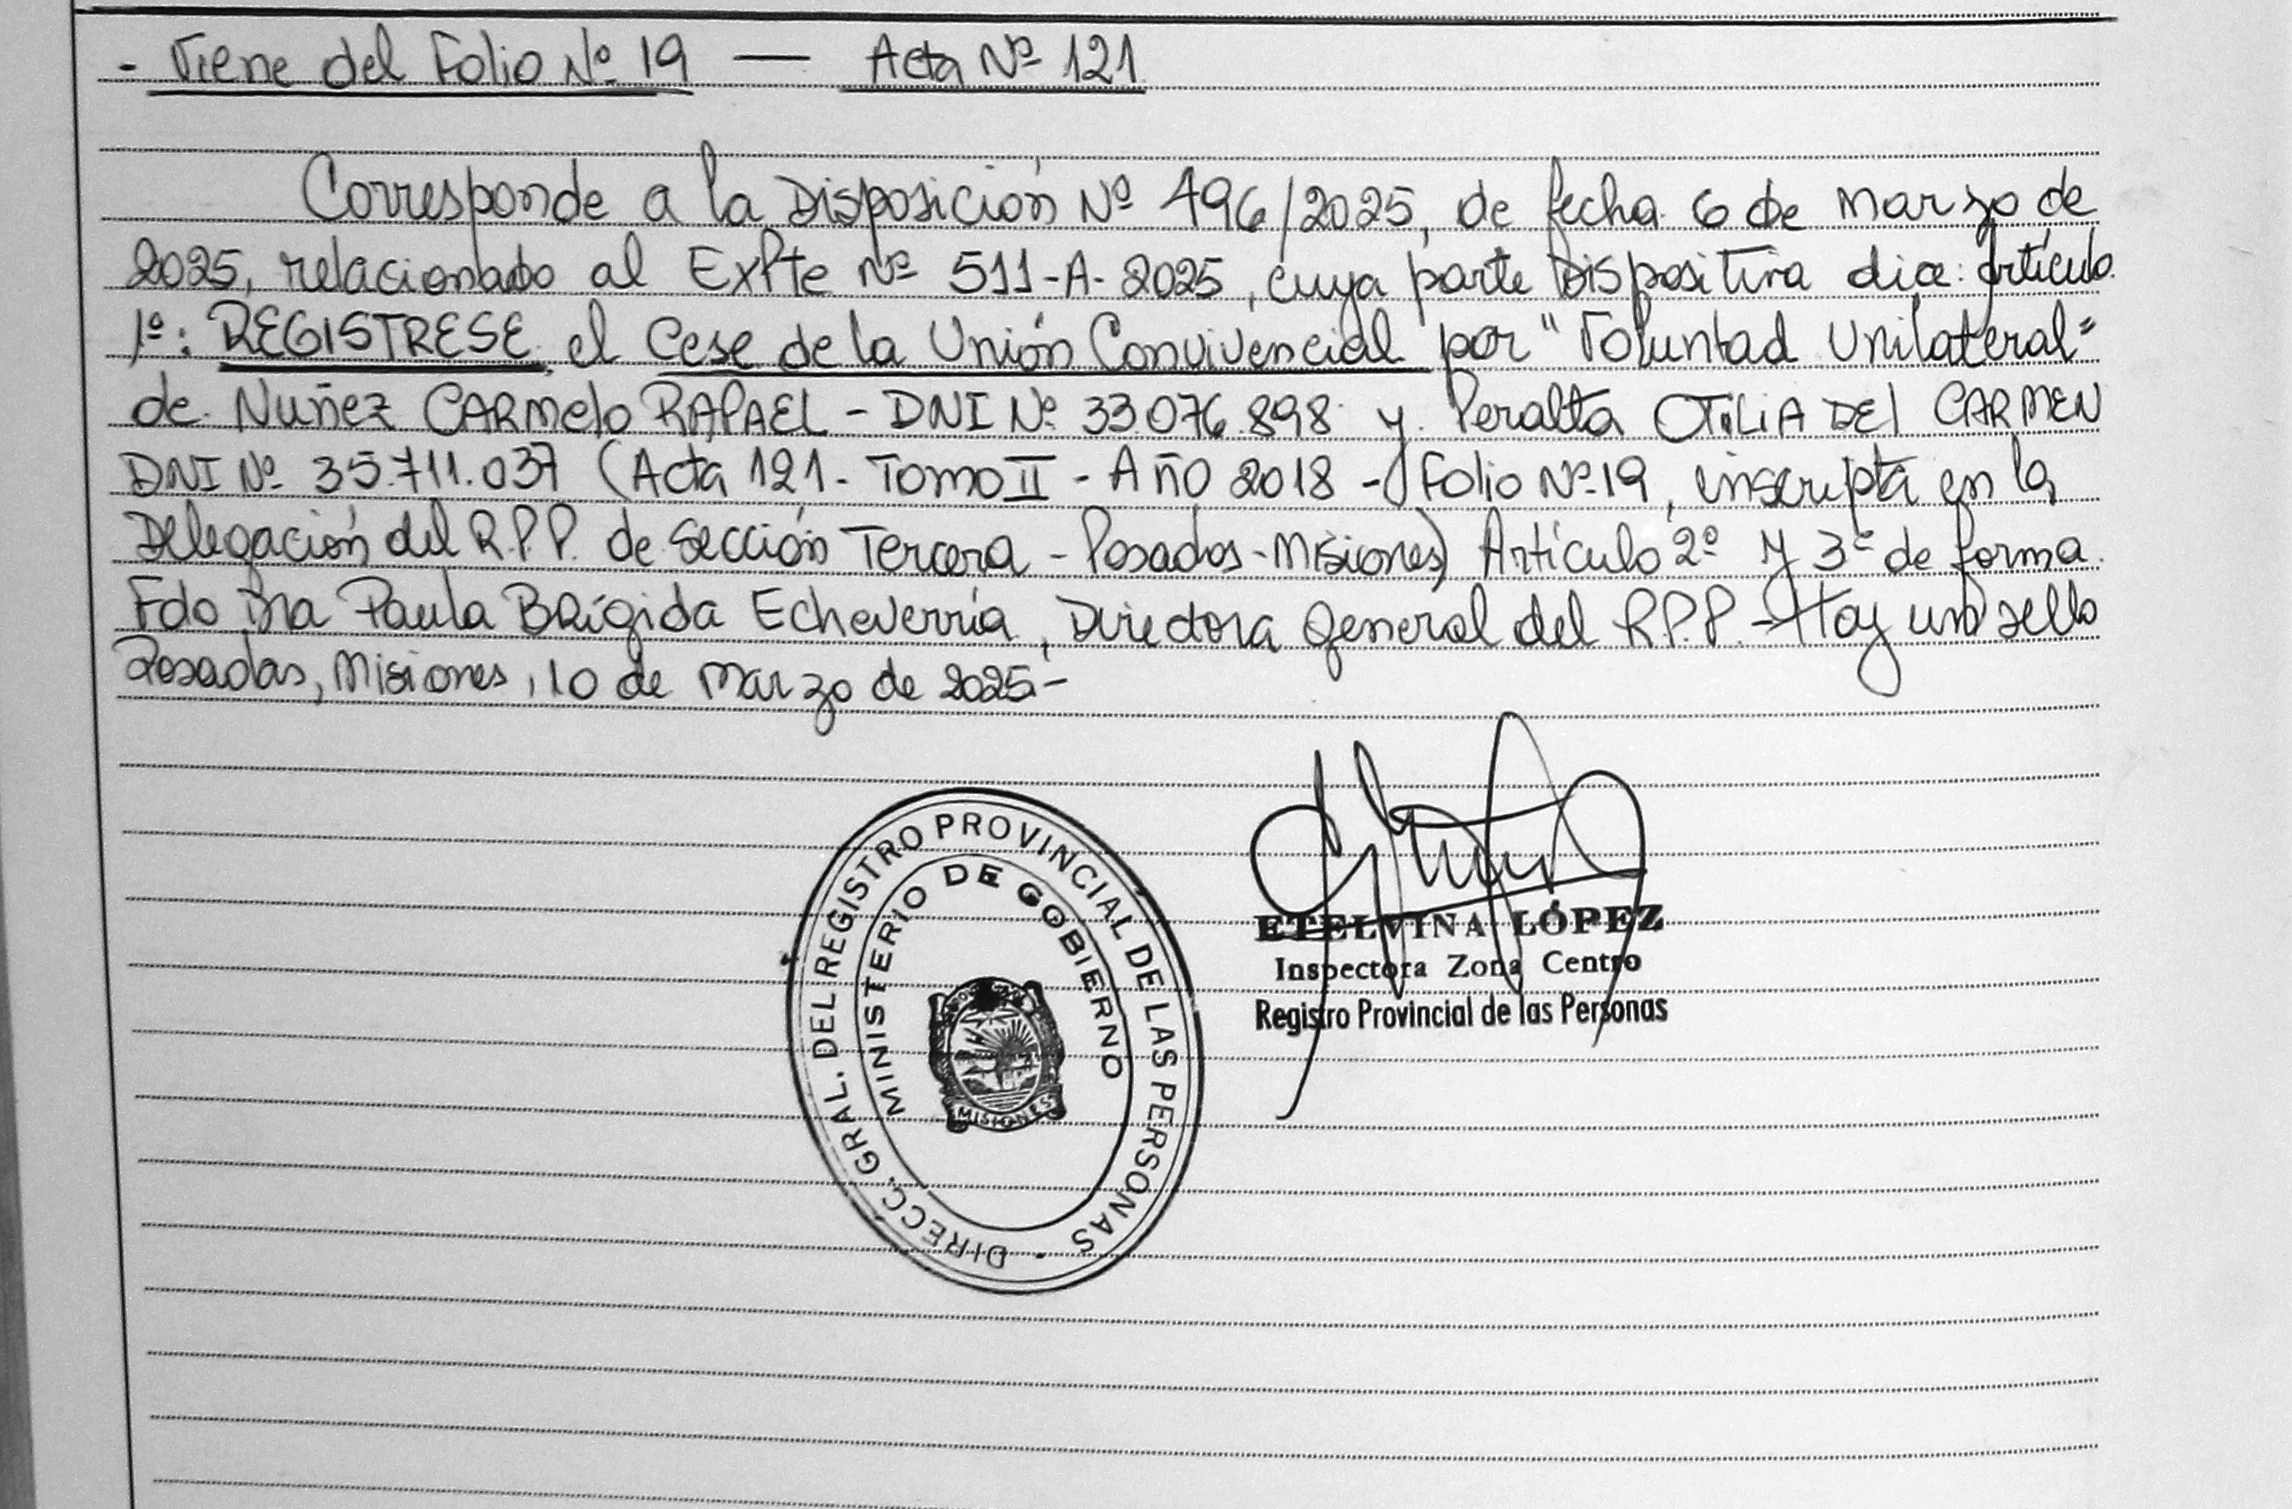 - Viene del Folio Nº 19 — Acta Nº 121
Corresponde a la Disposición Nº 496/2025, de fecha 6 de Marzo de
2025, relacionado al Expte Nº 511-A-2025, cuya parte Dispositiva dice: Artículo
1º: REGISTRESE el Cese de la Unión Convivencial por "Voluntad Unilateral"
de Nuñez CARMelo RAFAEL - DNI Nº 33.076.898 y Peralta OTILIA DEl CARMEN
DNI Nº 35.711.037 (Acta 121 - Tomo II - Año 2018 - Folio Nº 19, inscripta en la
Delegación del R.P.P. de Sección Tercera - Posadas - Misiones) Artículo 2º y 3º de forma.
Fdo Dra Paula Brígida Echeverría, Directora General del R.P.P. - Hay un sello
Posadas, Misiones, 10 de Marzo de 2025.-
DIRECC. GRAL. DEL REGISTRO PROVINCIAL DE LAS PERSONAS
MINISTERIO DE GOBIERNO
MISIONES
ETELVINA LÓPEZ
Inspectora Zona Centro
Registro Provincial de las Personas